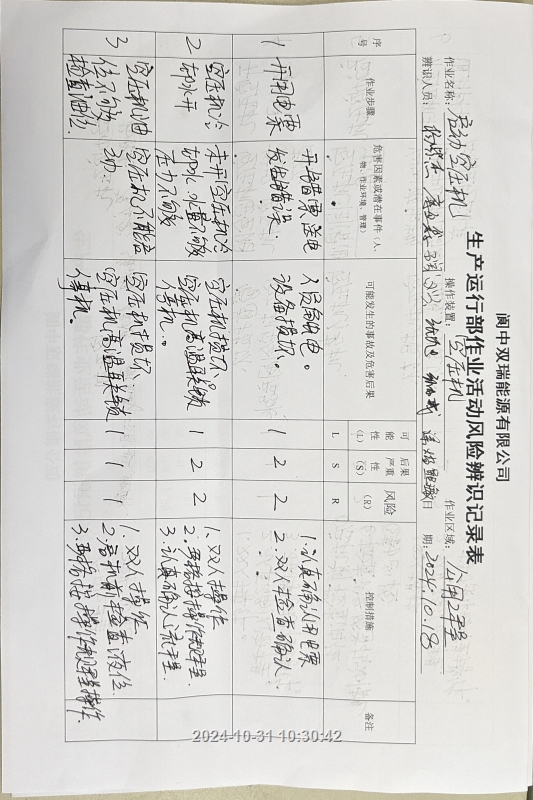 阆中双瑞能源有限公司
生产运行部作业活动风险辨识记录表
作业名称：启动空压机 操作装置：空压机 作业区域：公用工程
辨识人员： 日期：2024.10.18
序号 作业步骤 危害因素或潜在事件（人、物、作业环境、管理） 可能发生的事故及危害后果 可能性（L） 后果严重性（S） 风险（R） 控制措施 备注
L S R
1 开电票 开错票，送电发生错误。 人员触电。设备损坏。 1 2 2 1.认真确认用电票
2.双人检查确认.
2 空压机冷却水开 未开空压机冷却水，水量不够压力不够 空压机损坏 空压机高温联锁停机。 1 2 2 1.双人操作
2.严格按操作规程
3.认真确认流程.
3 空压机油位不够 检查油位. 空压机不能启动. 空压机损坏. 空压机高温联锁停机. 1 1 1 1.双人操作
2.启机前检查液位.
3.严格按操作规程操作.
2024-10-31 10:30:42